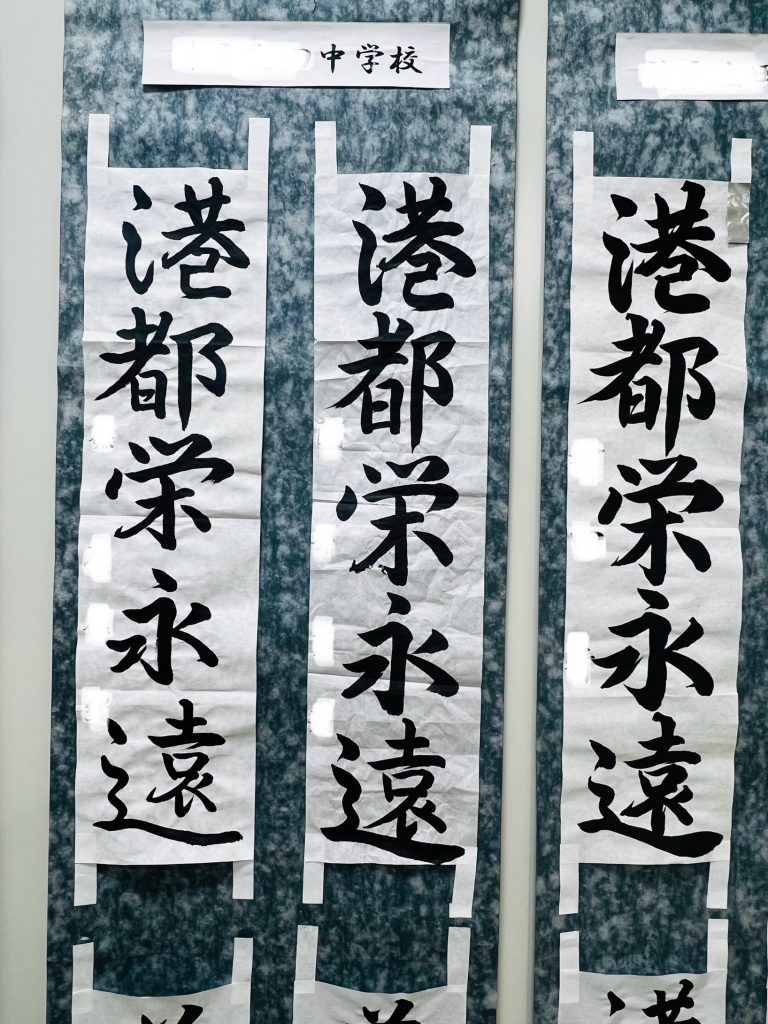 中学校
港都栄永遠
港都栄永遠
港都栄永遠
港